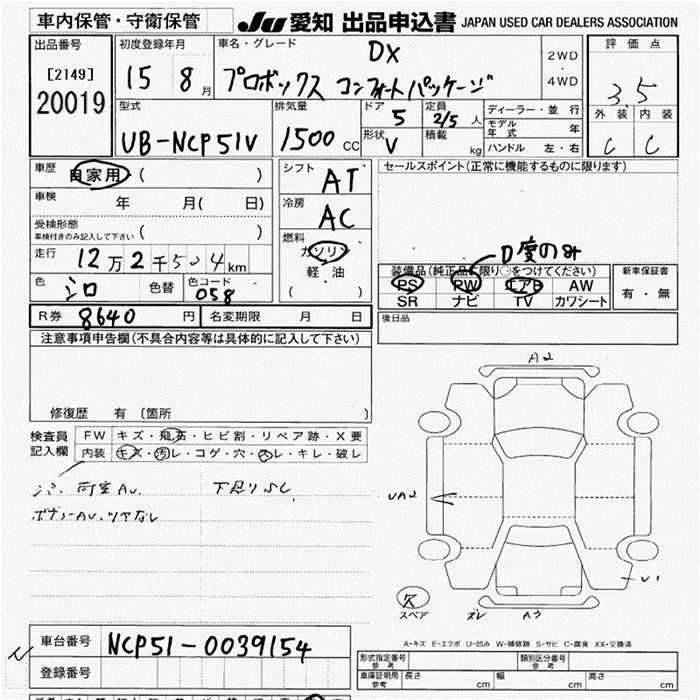 車内保管・守衛保管
JU 愛知 出品申込書 JAPAN USED CAR DEALERS ASSOCIATION
出品番号
[2149]
20019
初度登録年月
15 8月
車名・グレード
DX
プロボックス コンフォートパッケージ
2WD
・
4WD
評価点
3.5
外装 内装
C C
型式
UB-NCP51V
排気量
1500 CC
ドア 5
定員 2/5人
形状 V
積載 kg
ディーラー・並行
モデル年式 年
ハンドル 左・右
車歴 自家用 ( )
車検 年 月( 日)
受検形態
車検付きのみ記入して下さい ( )
走行 12万2千504km
色 シロ 色替 色コード 058
シフト AT
冷房 AC
燃料
ガソリン
軽・油
( )
セールスポイント(正常に機能するものに限ります)
装備品(純正品に限り○をつけてください)
PS PW エアB AW
SR ナビ TV カワシート
新車保証書
有・無
後日品
R券 8640 円 名変期限 月 日
注意事項申告欄(不具合内容等は具体的に記入して下さい)
修復歴 有 〔箇所 〕
検査員記入欄
FW キズ・飛石・ヒビ割・リペア跡・X要
内装 キズ・汚レ・コゲ・穴・スレ・キレ・破レ
ボデーAU.ツヤなし
A2
UA2
スペア
ズレ
A3
A-キズ E-エクボ U-凹み W-補修跡 S-サビ C-腐食 XX-交換済
車台番号 NCP51-0039154
登録番号
形式指定番号 参考
類別区分番号 参考
車庫証明用 参考 長さ cm 幅 cm 高さ cm